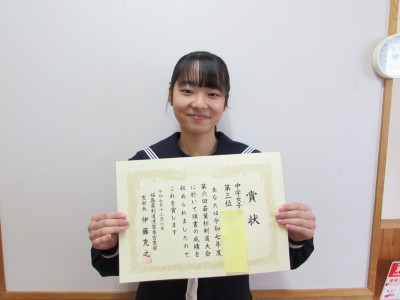 賞状
中学女子
第三位
あなたは令和七年度
第六回若葉杯剣道大会
に於いて頭書の成績を
収められましたので
これを賞します
令和七年十二月六日
支部長 伊藤克之